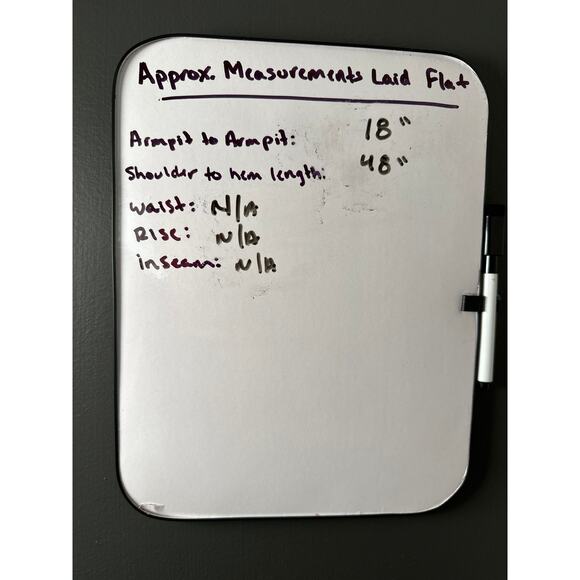 Approx. Measurements Laid Flat
Armpit to Armpit: 18"
Shoulder to hem length: 48"
Waist: N/A
Rise: N/A
inseam: N/A